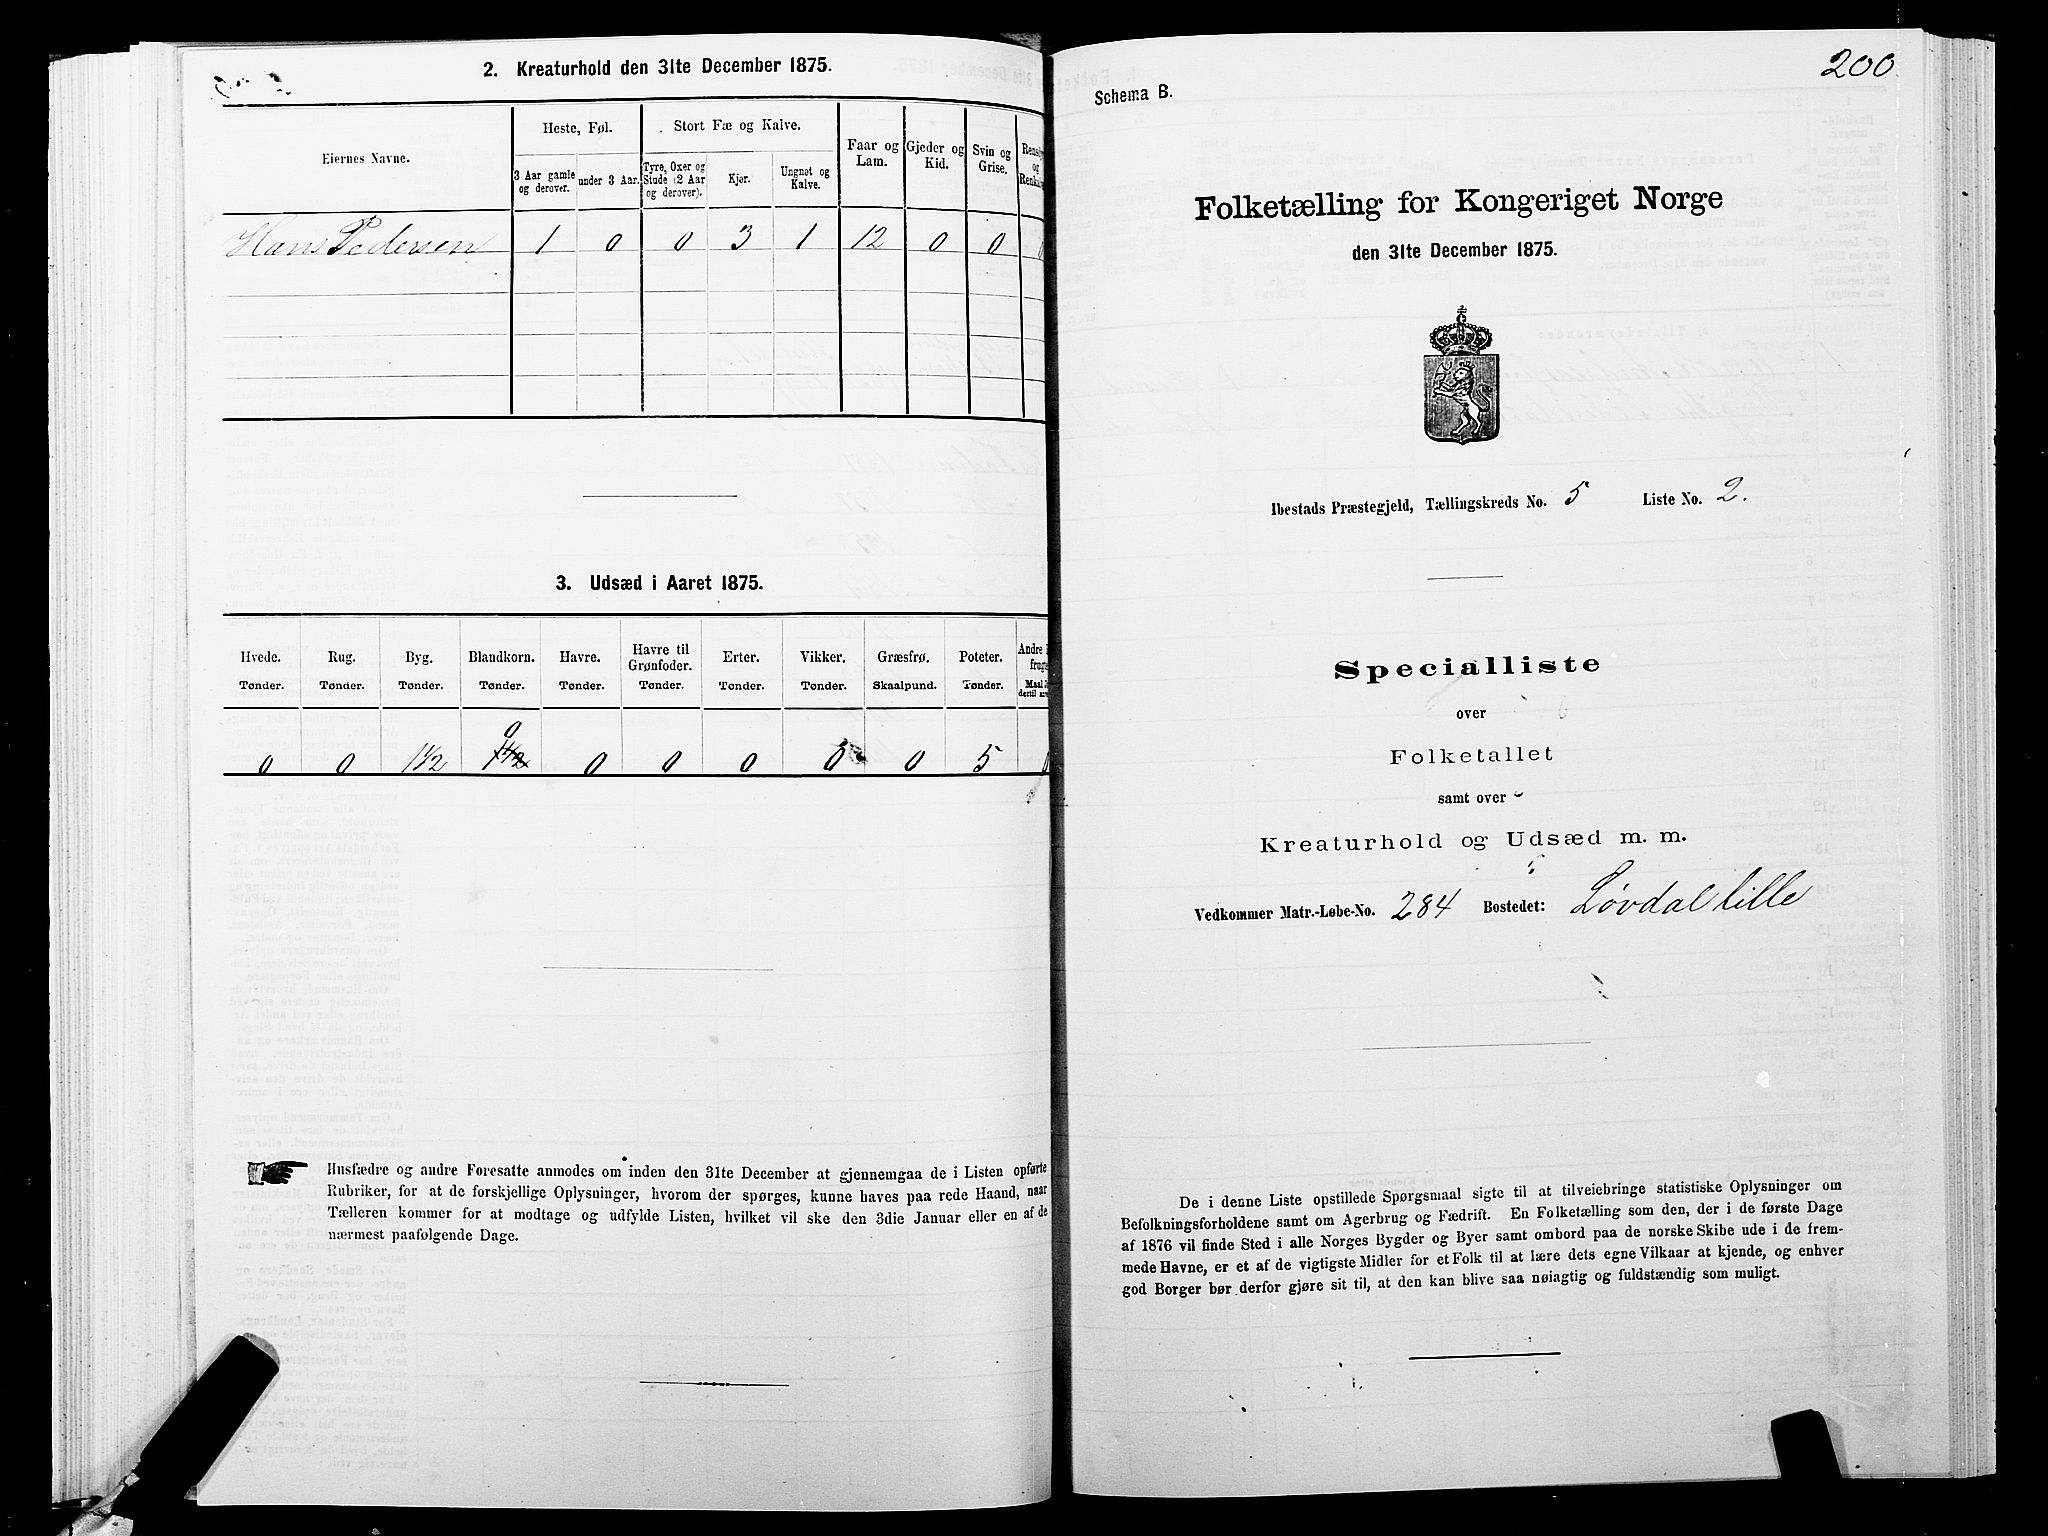 2. Kreaturhold den 31te December 1875.
Eiernes Navne.
Heste, Føl.
Stort Fæ og Kalve.
Faar og Lam.
Gjeder og Kid.
Svin og Grise.
3 Aar gamle og derover.
under 3 Aar.
Tyre, Oxer og Stude (2 Aar og derover).
Kjør.
Ungnøt og Kalve.
Hans Pedersen 1 0 0 3 1 12 0 0 0
3. Udsæd i Aaret 1875.
Hvede. Rug. Byg. Blandkorn. Havre. Havre til Grønfoder. Erter. Vikker. Græsfrø. Poteter.
Tønder. Tønder. Tønder. Tønder. Tønder. Tønder. Tønder. Tønder. Skaalpund. Tønder.
0 0 1 1/2 0 0 0 0 0 0 5 0
Husfædre og andre Foresatte anmodes om inden den 31te December at gjennemgaa de i Listen opførte
Rubriker, for at de forskjellige Oplysninger, hvorom der spørges, kunne haves paa rede Haand, naar
Tælleren kommer for at modtage og udfylde Listen, hvilket vil ske den 3die Januar eller en af de
nærmest paafølgende Dage.
200
Schema B.
Folketælling for Kongeriget Norge
den 31te December 1875.
Ibestads Præstegjeld, Tællingskreds No. 5 Liste No. 2.
Specialliste
over
Folketallet
samt over
Kreaturhold og Udsæd m. m.
Vedkommer Matr.-Løbe-No. 284 Bostedet: Løvdal lille
De i denne Liste opstillede Spørgsmaal sigte til at tilveiebringe statistiske Oplysninger om
Befolkningsforholdene samt om Agerbrug og Fædrift. En Folketælling som den, der i de første Dage
af 1876 vil finde Sted i alle Norges Bygder og Byer samt ombord paa de norske Skibe ude i de frem-
mede Havne, er et af de vigtigste Midler for et Folk til at lære dets egne Vilkaar at kjende, og enhver
god Borger bør derfor gjøre sit til, at den kan blive saa nøiagtig og fuldstændig som muligt.